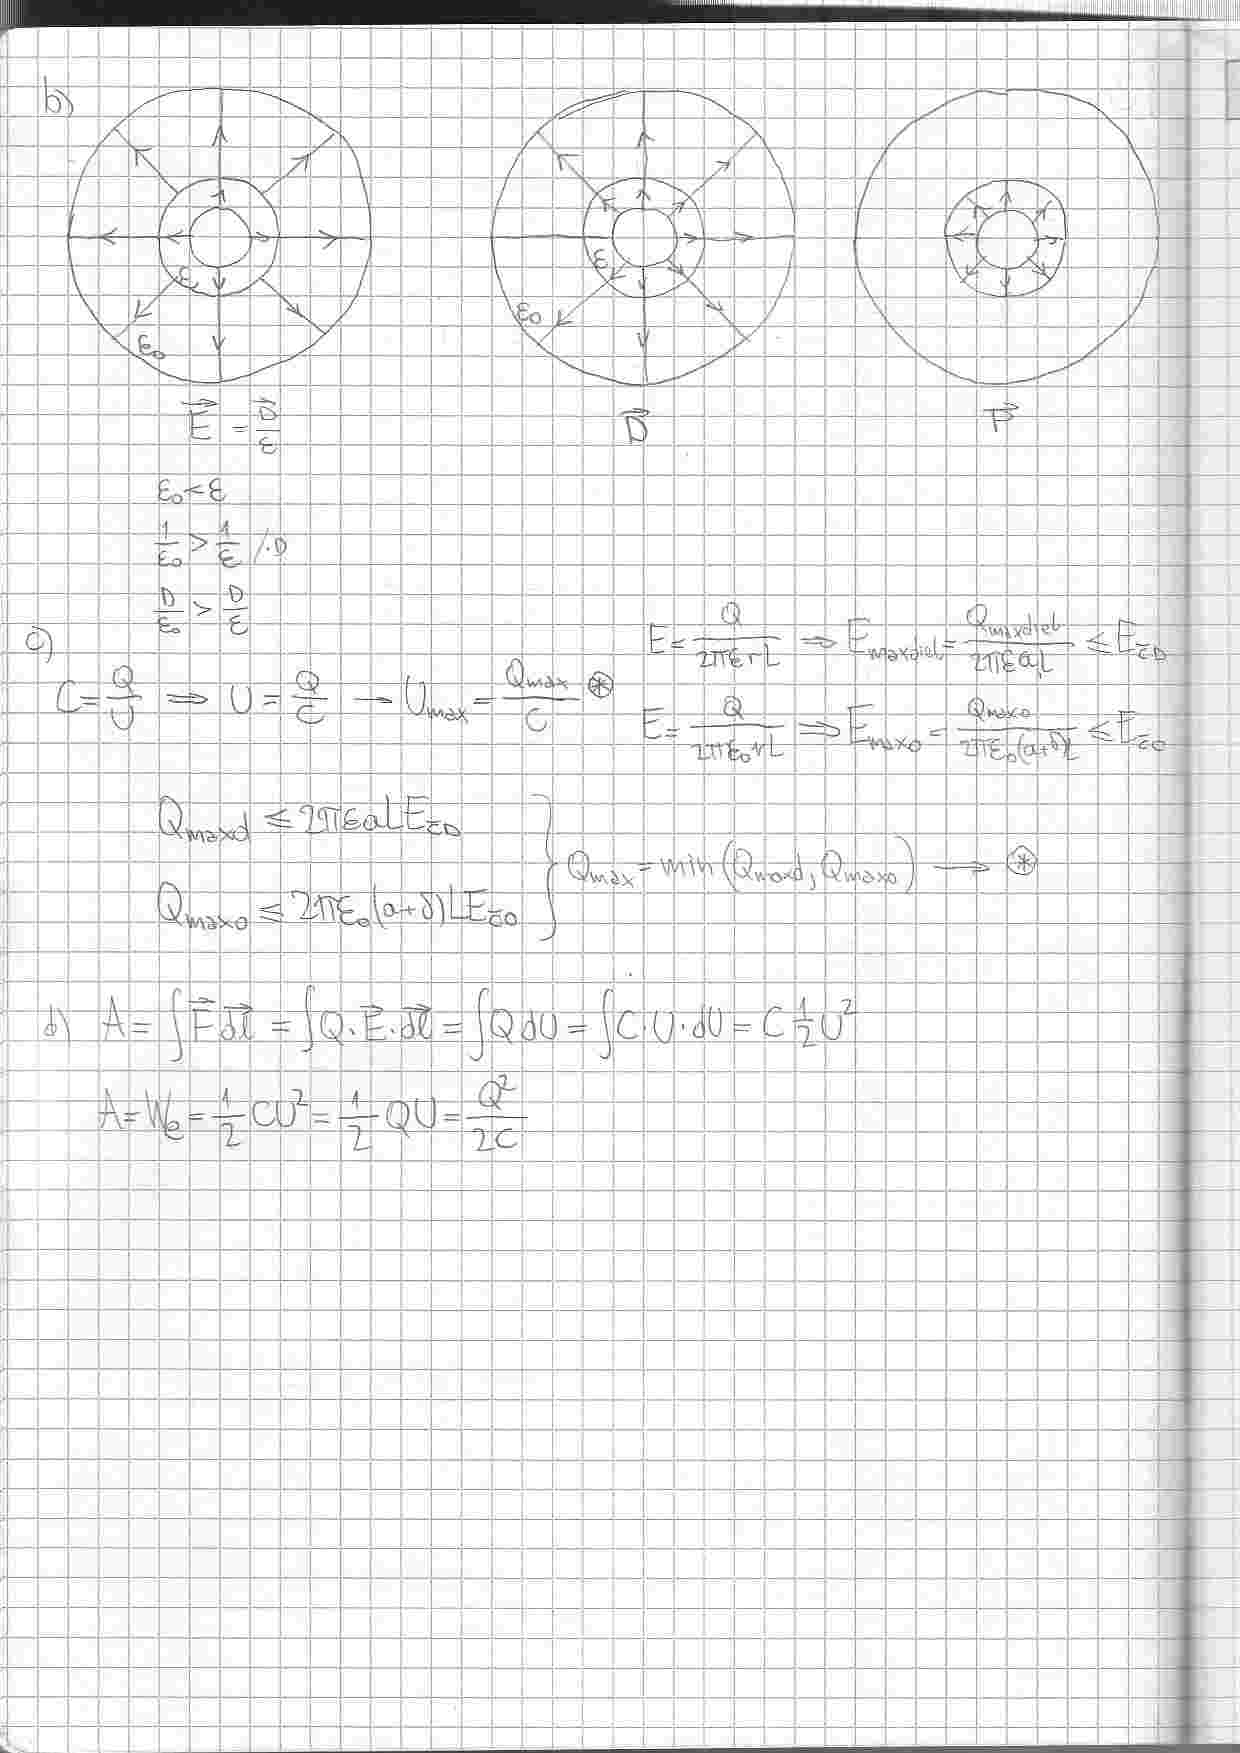 b)
ε ε₀
ε ε₀
E⃗ = D⃗/ε
D⃗
P⃗
ε₀ < ε
1/ε₀ > 1/ε /·D
D/ε₀ > D/ε
c)
C = Q/U ⇒ U = Q/C → Umax = Qmax/C ⊛
E = Q/2πεrL ⇒ Emaxdiel = Qmaxdiel/2πεaL ≤ EčD
E = Q/2πε₀rL ⇒ Emax0 = Qmax0/2πε₀(a+δ)L ≤ Eč0
Qmaxd ≤ 2πεaLEčD
Qmax0 ≤ 2πε₀(a+δ)LEč0
} Qmax = min(Qmaxd, Qmax0) → ⊛
d) A = ∫F⃗dl⃗ = ∫Q·E⃗·dl⃗ = ∫QdU = ∫C·U·dU = C 1/2 U²
A = We = 1/2 CU² = 1/2 QU = Q²/2C